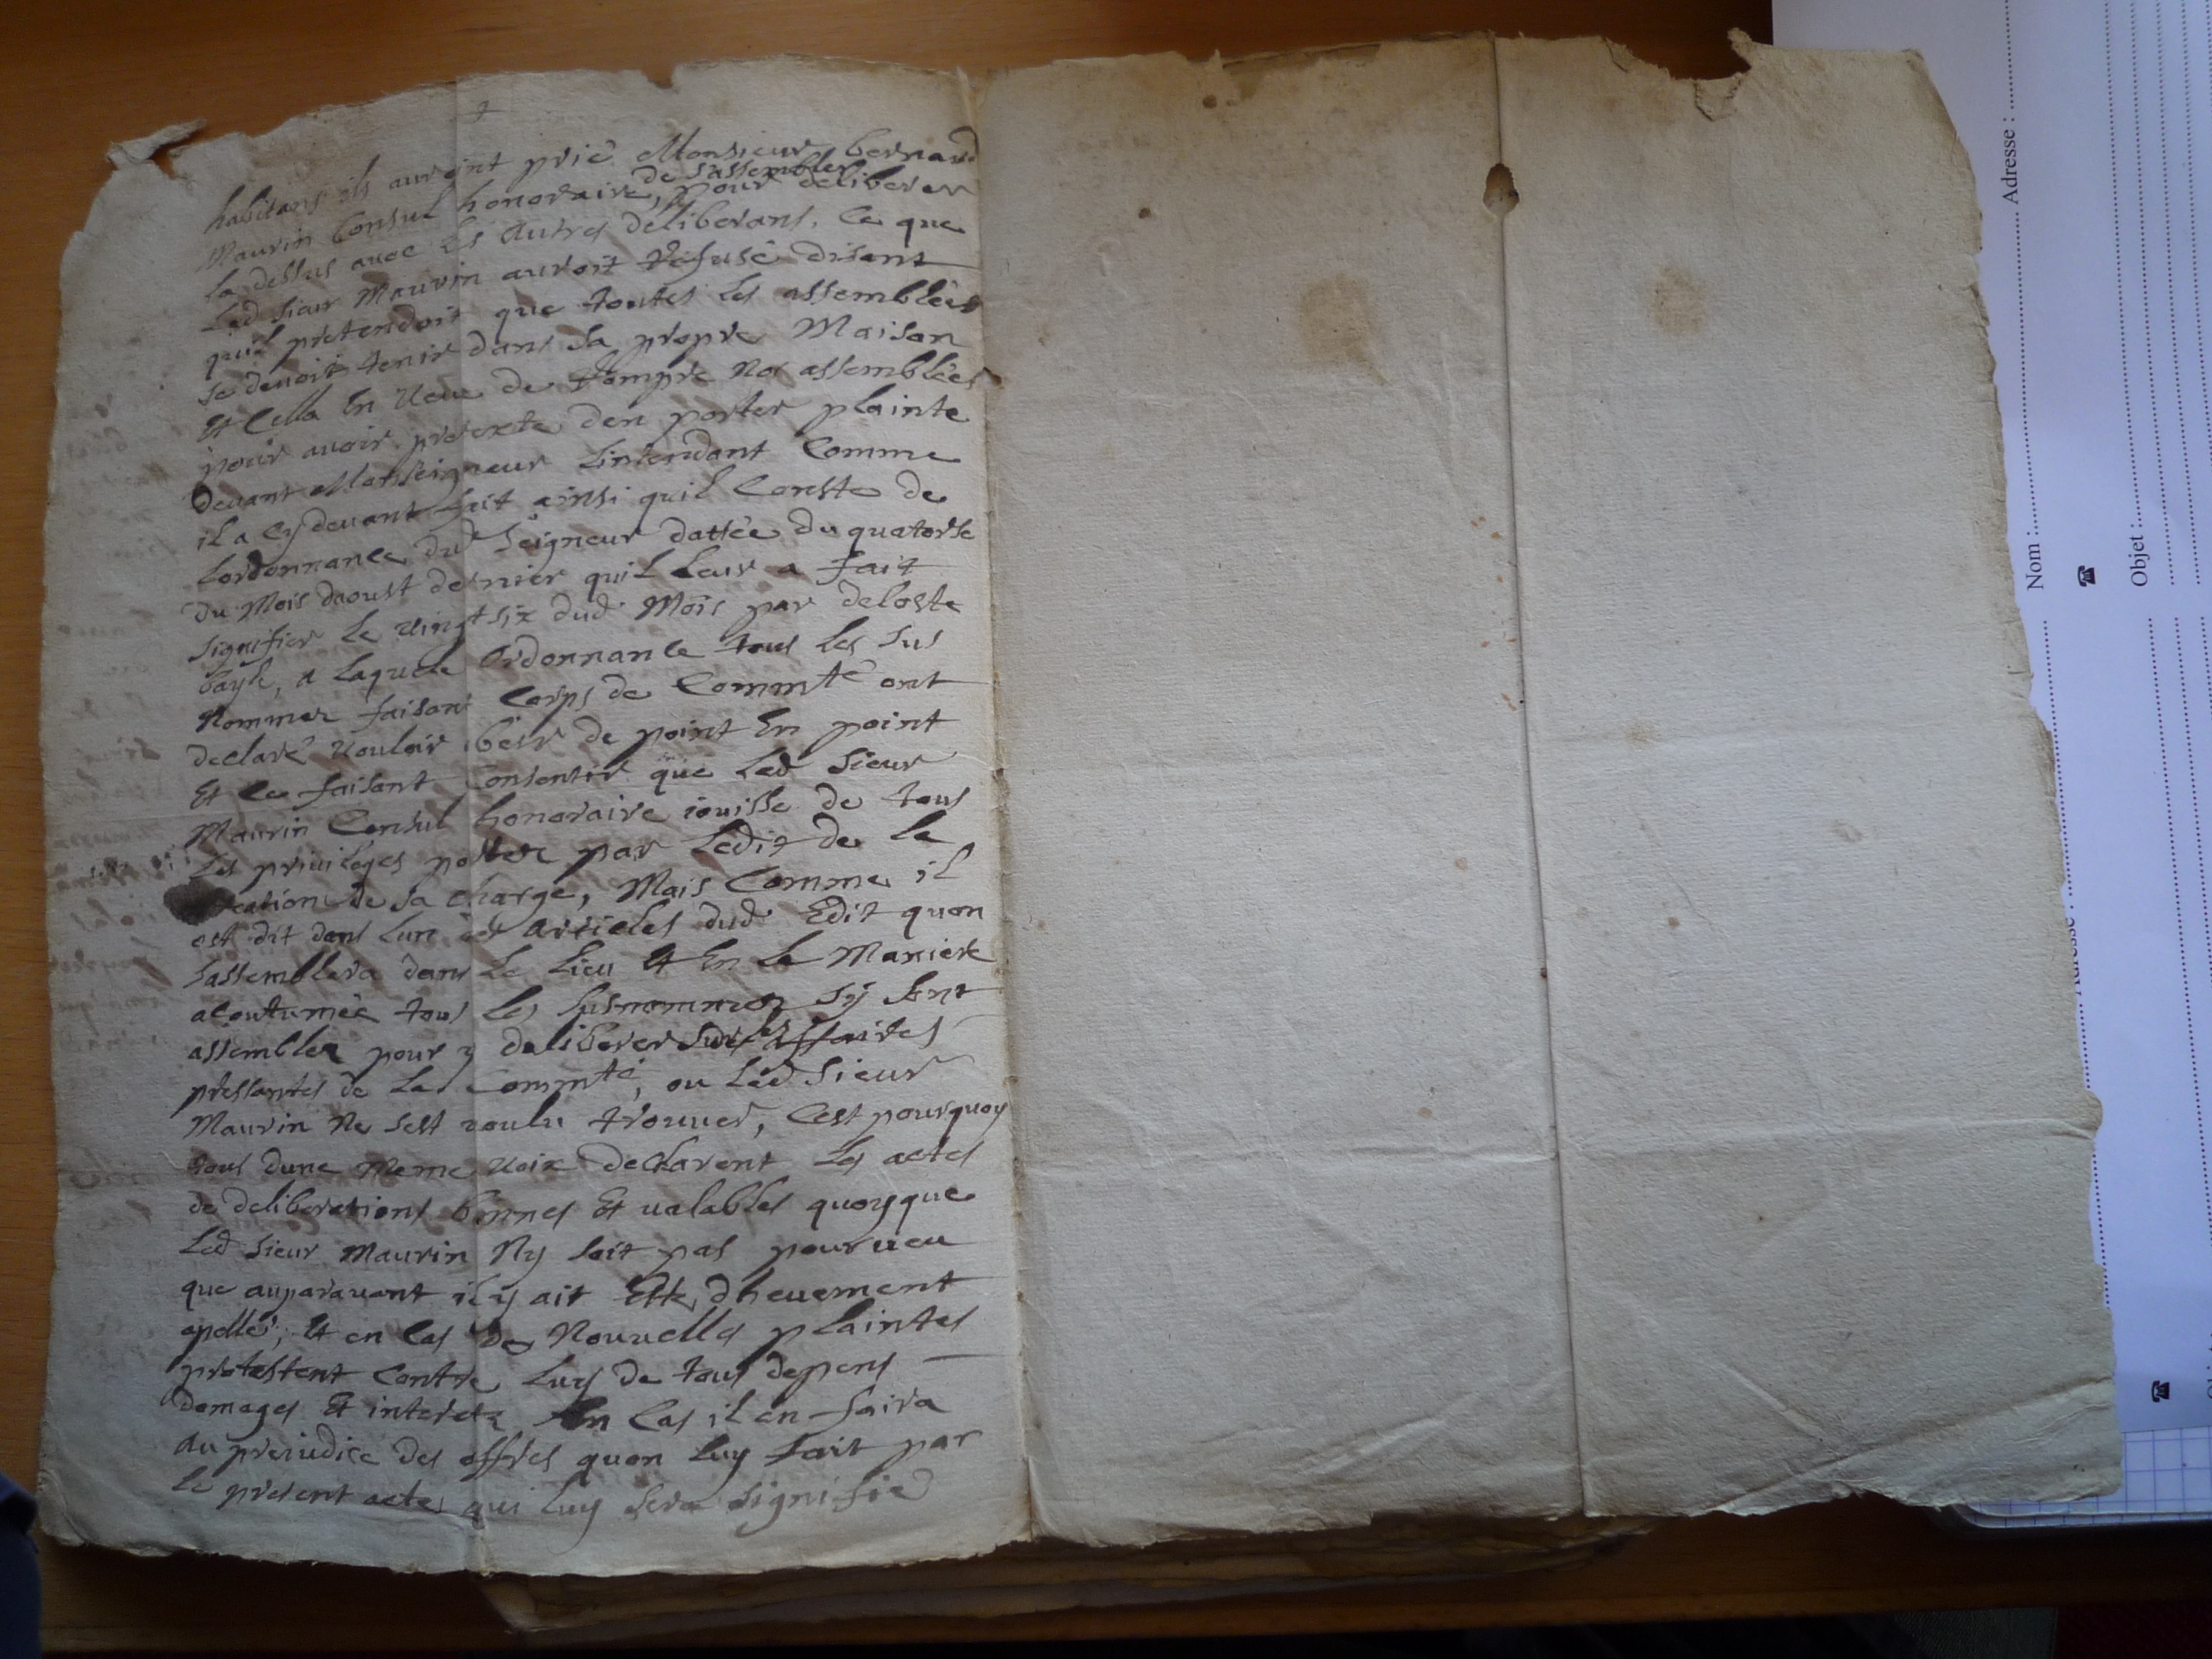 habitans ils auroint prié Monsieur bernard
Maurin Consul honoraire, de sassembler pour deliberer
la dessus avec les autres deliberans, Ce que
Led sieur Maurin auroit refusé disant
quil pretendoit que toutes les assemblées
se devoit tenir dans sa propre Maison
Et Cella En veue de rompre nos assemblées
pour avoir pretexte den porter plainte
devant Monseigneur Lintendant Comme
il a Cy devant fait ainsi quil Conste de
Lordonnance dud Seigneur dattée du quatorse
du Mois daoust dernier quil leur a fait
signifier le vingt six dud Mois par deloste
bayle, a laquele ordonnance tous les sus
nommez faisant Corps de Commté ont
declaré vouloir obeir de point En point
Et Ce faisant Consentir que Led Sieur
Maurin Consul honoraire iouisse de tous
Les privileges portez par Ledit de la
creation de sa charge, Mais Comme il
est dit dans lun des articles dud Edit quon
sassemblera dans Le Lieu Et En la Maniere
acoutumée tous les susnommez sy sont
assemblez pour y deliberer sur les affaires
pressantes de La Commté, ou Led Sieur
Maurin Ne sest voulu trouver, Cest pourquoy
tous dune meme voix declarent les actes
de deliberations bonnes Et valables quoyque
Led Sieur Maurin Ny soit pas pourveu
que auparavant il y ait Esté dheuement
apellé, Et en Cas de Nouvelles plaintes
protestent Contre Luy de tous depens
domages Et interetz En Cas il en faira
au preiudice des offres quon luy fait par
le present acte qui luy sera signifié
Adresse :
Nom :
☎
Objet :
Adresse :
☎